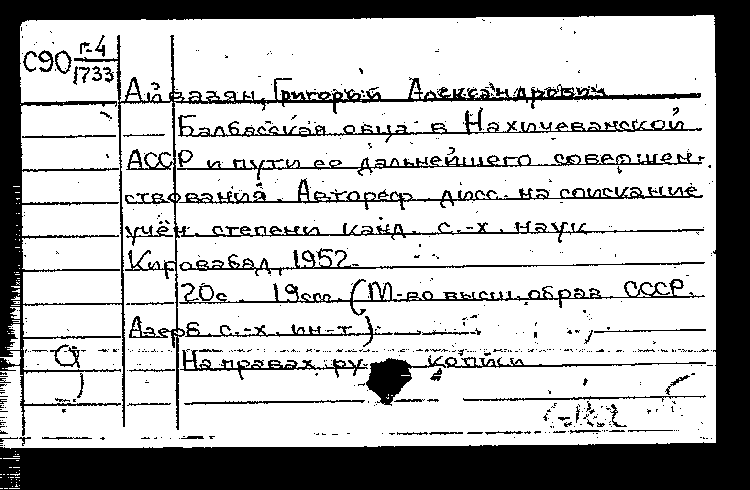 С90 г-4
1733
Айвазян, Григорий Александрович
Балбасская овца в Нахичеванской
АССР и пути ее дальнейшего совершен-
ствования. Автореф. дисс. на соискание
учён. степени канд. с.-х. наук.
Кировабад, 1952.
20с. 19см. (М-во высш. образ. СССР.
Азерб. с.-х. ин-т.)
На правах рукописи